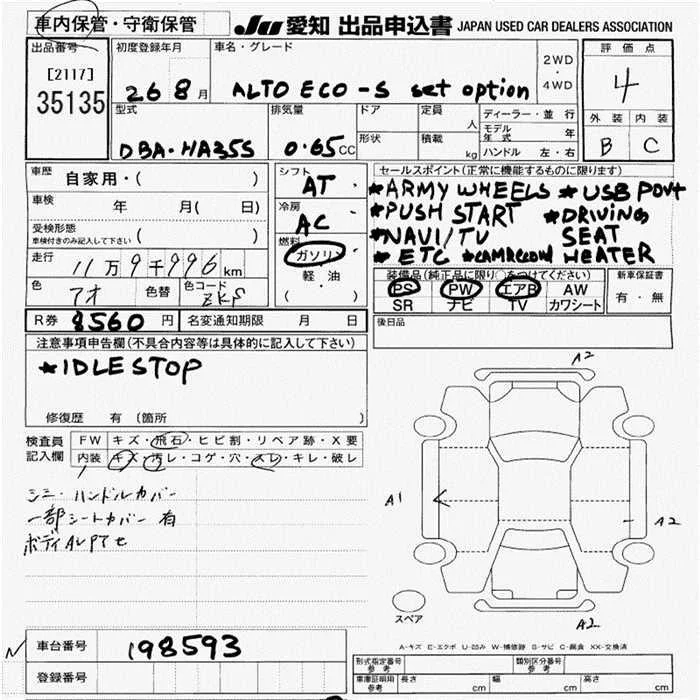 車内保管・守衛保管 JU 愛知 出品申込書 JAPAN USED CAR DEALERS ASSOCIATION
出品番号 初度登録年月 車名・グレード 評価点
[2117] 2WD
35135 26 8月 ALTO ECO-S set option ・ 4WD 4
型式 排気量 ドア 定員 人 ディーラー・並行 外装 内装
モデル年式 年
DBA-HA35S 0.65CC 形状 積載 kg ハンドル 左・右 B C
車歴 自家用・( ) シフト AT セールスポイント(正常に機能するものに限ります)
車検 年 月( 日) 冷房 AC *ARMY WHEELS *USB PORT
受検形態 ( ) *PUSH START *DRIVING
車検付きのみ記入して下さい 燃料 ガソリン *NAVI/TV SEAT
走行 11万9千996km 軽・油 *ETC HEATER
色 アオ 色替 色コード ( ) 装備品(純正品に限り○をつけてください) 新車保証書
PS PW エアB AW 有・無
SR ナビ TV カワシート
R券 8560円 名変通知期限 月 日 後日品
注意事項申告欄(不具合内容等は具体的に記入して下さい)
*IDLE STOP
修復歴 有 (箇所 )
検査員 FW キズ・飛石・ヒビ割・リペア跡・X要
記入欄 内装 キズ・汚レ・コゲ・穴・スレ・キレ・破レ
A2
シミ・ハンドルカバー A1
一部シートカバー有 A2
ボディ
スペア
A2
A-キズ E-エクボ U-凹み W-補修跡 S-サビ C-腐食 XX-交換済
車台番号 198593
登録番号
形式指定番号 参考 類別区分番号 参考
車庫証明用 参考 長さ cm 幅 cm 高さ cm